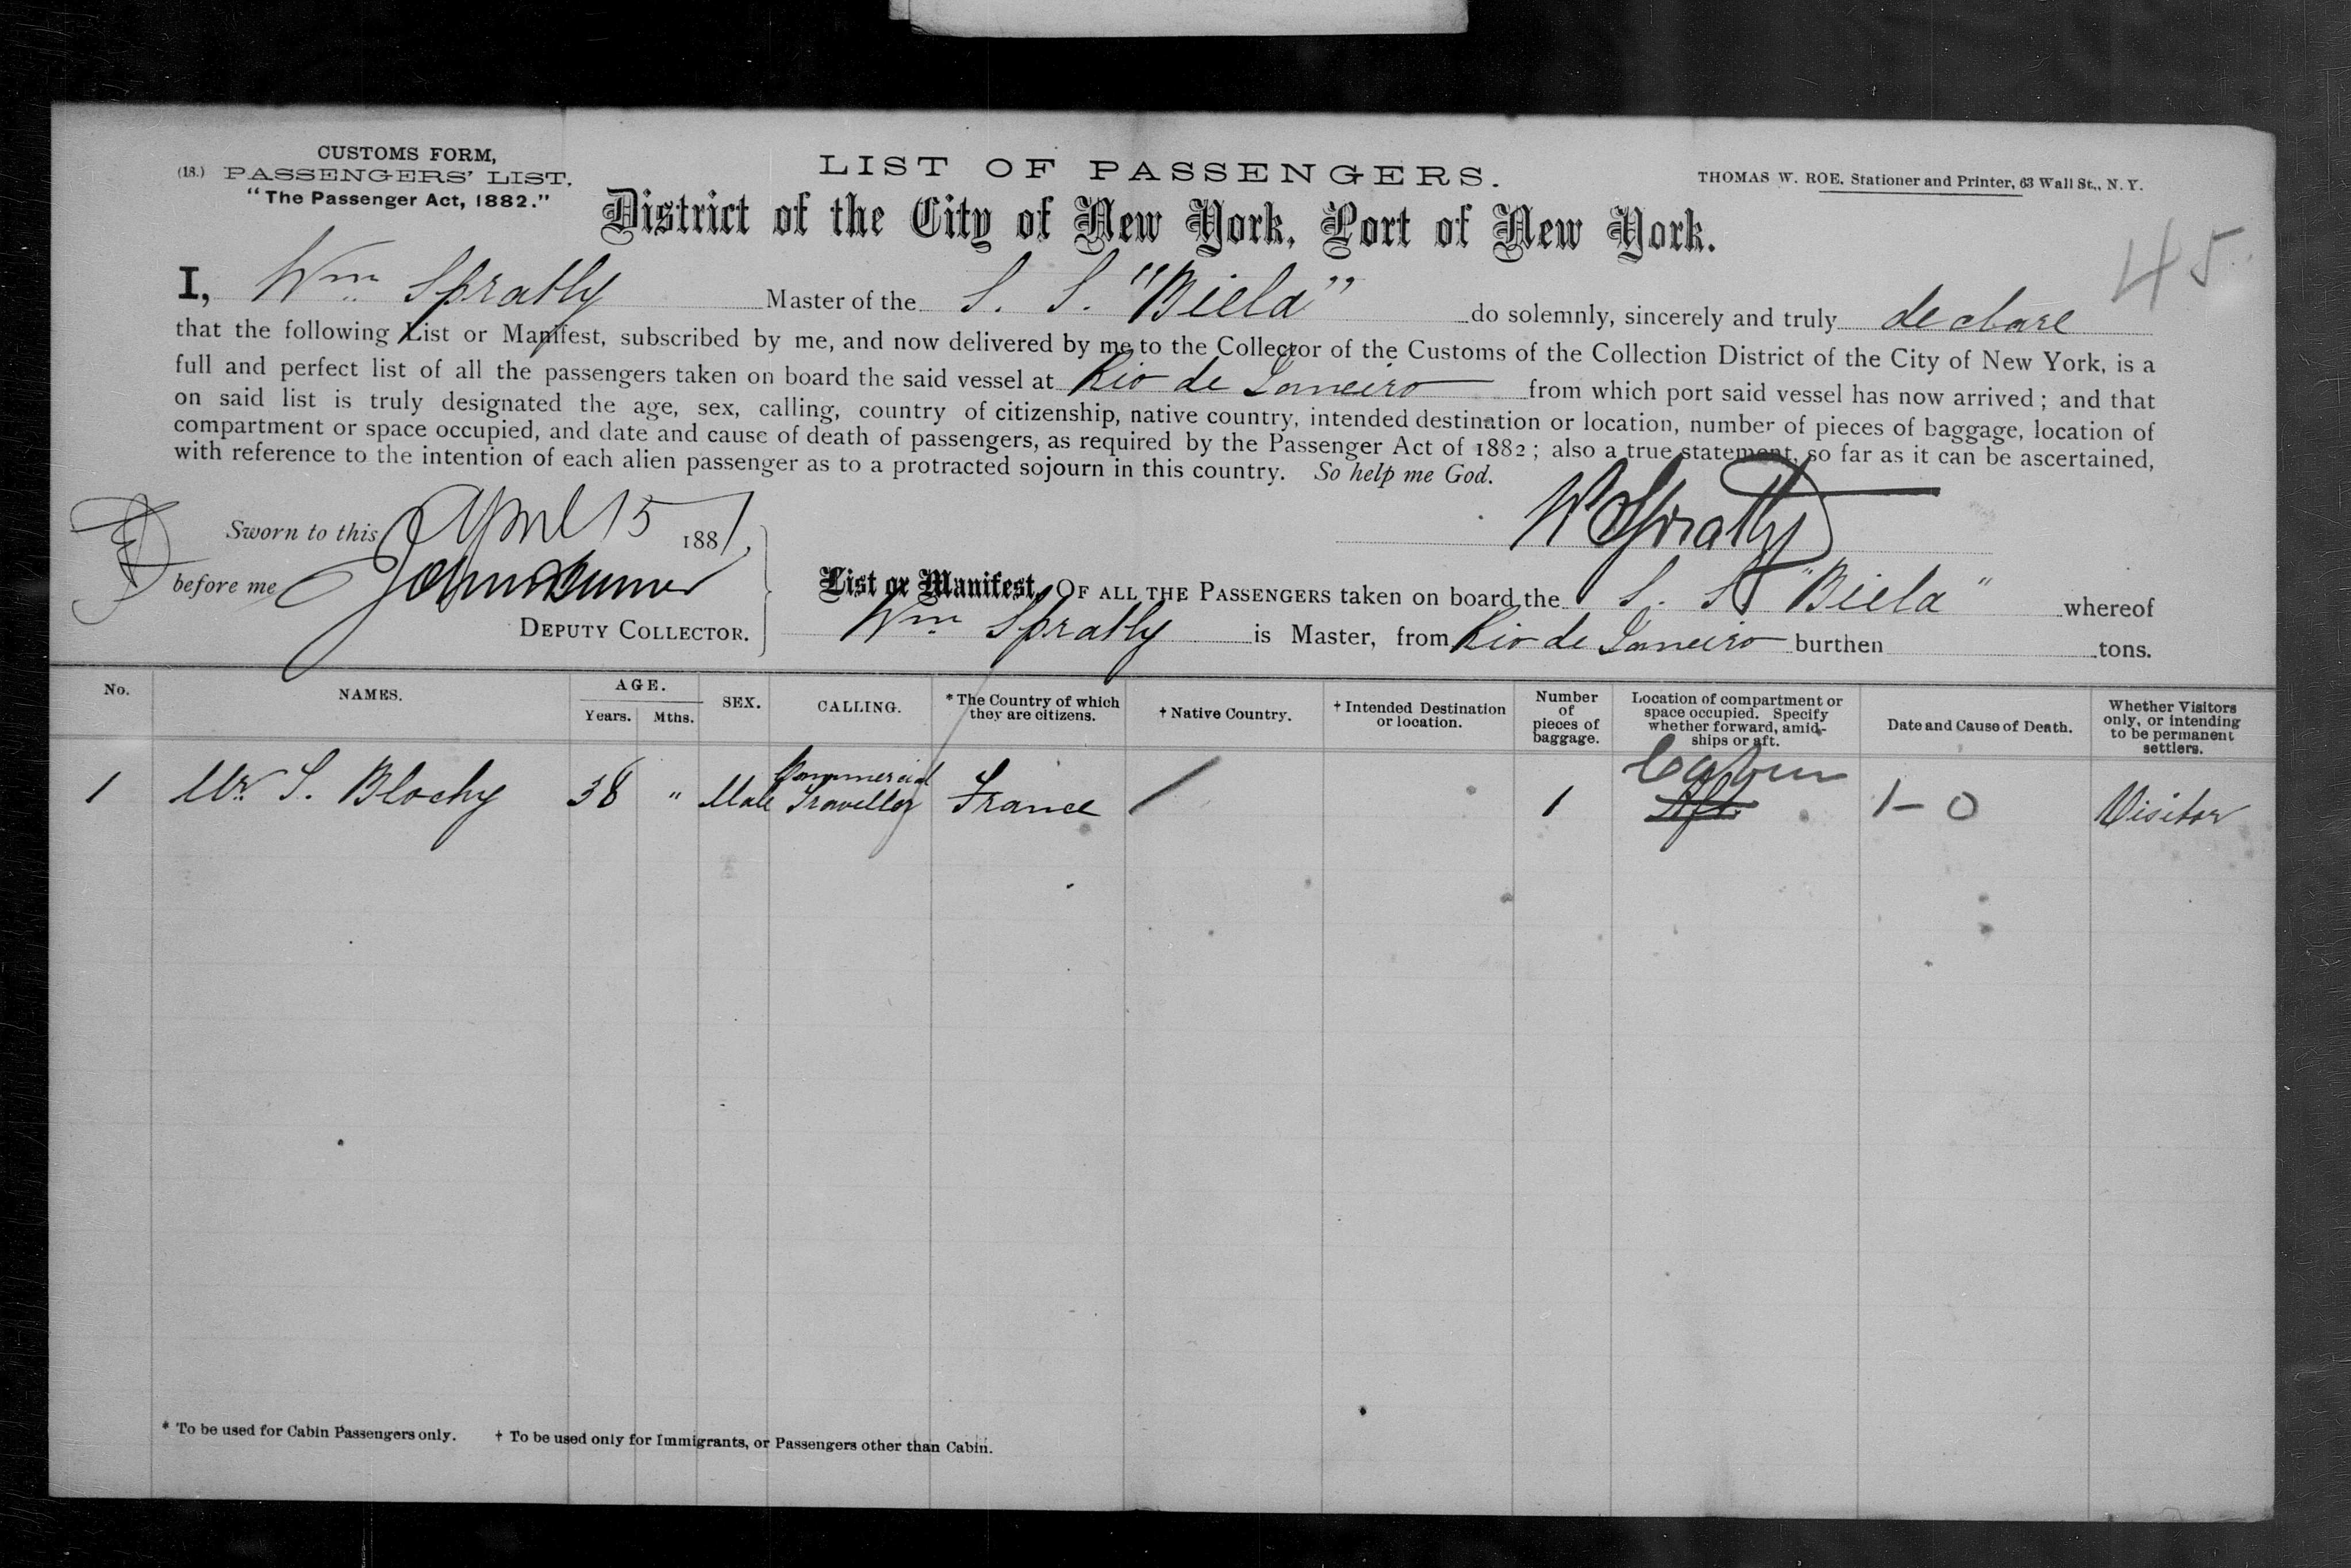 CUSTOMS FORM,
(18.) PASSENGERS' LIST,
"The Passenger Act, 1882."
LIST OF PASSENGERS.
THOMAS W. ROE, Stationer and Printer, 63 Wall St., N. Y.
District of the City of New York, Port of New York.
45
I, Wm Spratly Master of the S. S. "Biela" do solemnly, sincerely and truly declare
that the following List or Manifest, subscribed by me, and now delivered by me to the Collector of the Customs of the Collection District of the City of New York, is a
full and perfect list of all the passengers taken on board the said vessel at Rio de Janeiro from which port said vessel has now arrived; and that
on said list is truly designated the age, sex, calling, country of citizenship, native country, intended destination or location, number of pieces of baggage, location of
compartment or space occupied, and date and cause of death of passengers, as required by the Passenger Act of 1882; also a true statement, so far as it can be ascertained,
with reference to the intention of each alien passenger as to a protracted sojourn in this country. So help me God.
Sworn to this April 15 1887.
W Spratly
before me
DEPUTY COLLECTOR.
List or Manifest, OF ALL THE PASSENGERS taken on board the S. S. "Biela" whereof
Wm Spratly is Master, from Rio de Janeiro burthen tons.
No. NAMES. AGE. Years. Mths. SEX. CALLING. * The Country of which they are citizens. † Native Country. † Intended Destination or location. Number of pieces of baggage. Location of compartment or space occupied. Specify whether forward, amidships or aft. Date and Cause of Death. Whether Visitors only, or intending to be permanent settlers.
1 Mr. S. Blochy 38 " Male Commercial Traveller France / 1 Cabin Aft. 1-0 Visitor
* To be used for Cabin Passengers only. † To be used only for Immigrants, or Passengers other than Cabin.